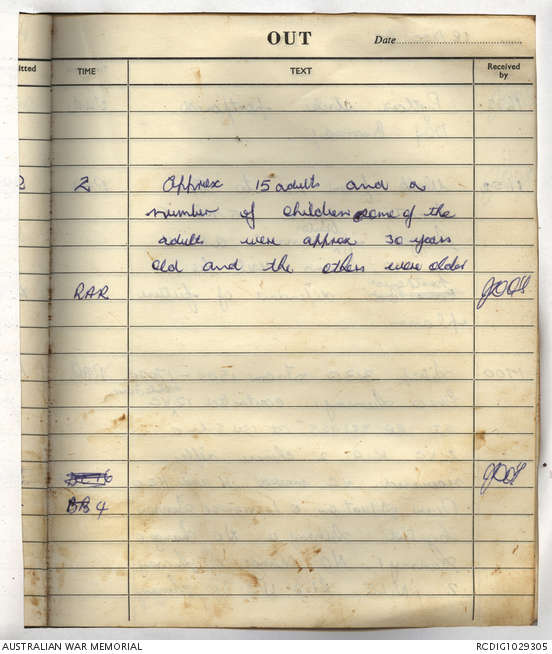 OUT
Date
itted
TIME
TEXT
Received by
2
2
Approx 15 adults and a
number of children some of the
adults were approx 30 years
old and the others were older
RAR
BB 4
AUSTRALIAN WAR MEMORIAL
RCDIG1029305